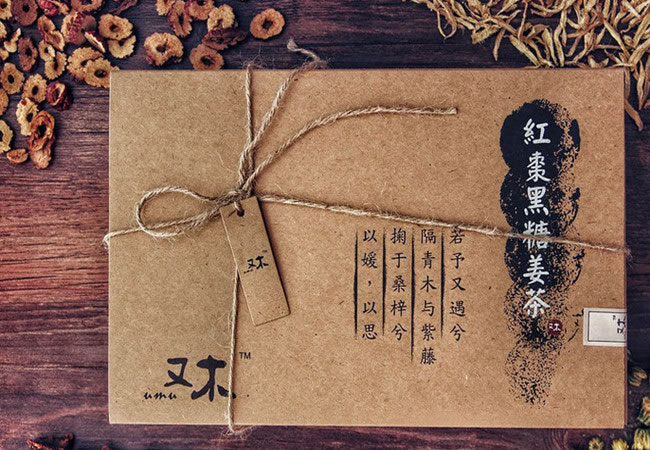 紅棗黑糖姜茶
若予又遇兮
隔青木与紫藤
掬于桑梓兮
以媛，以思
又木
又木
umu 又木 TM